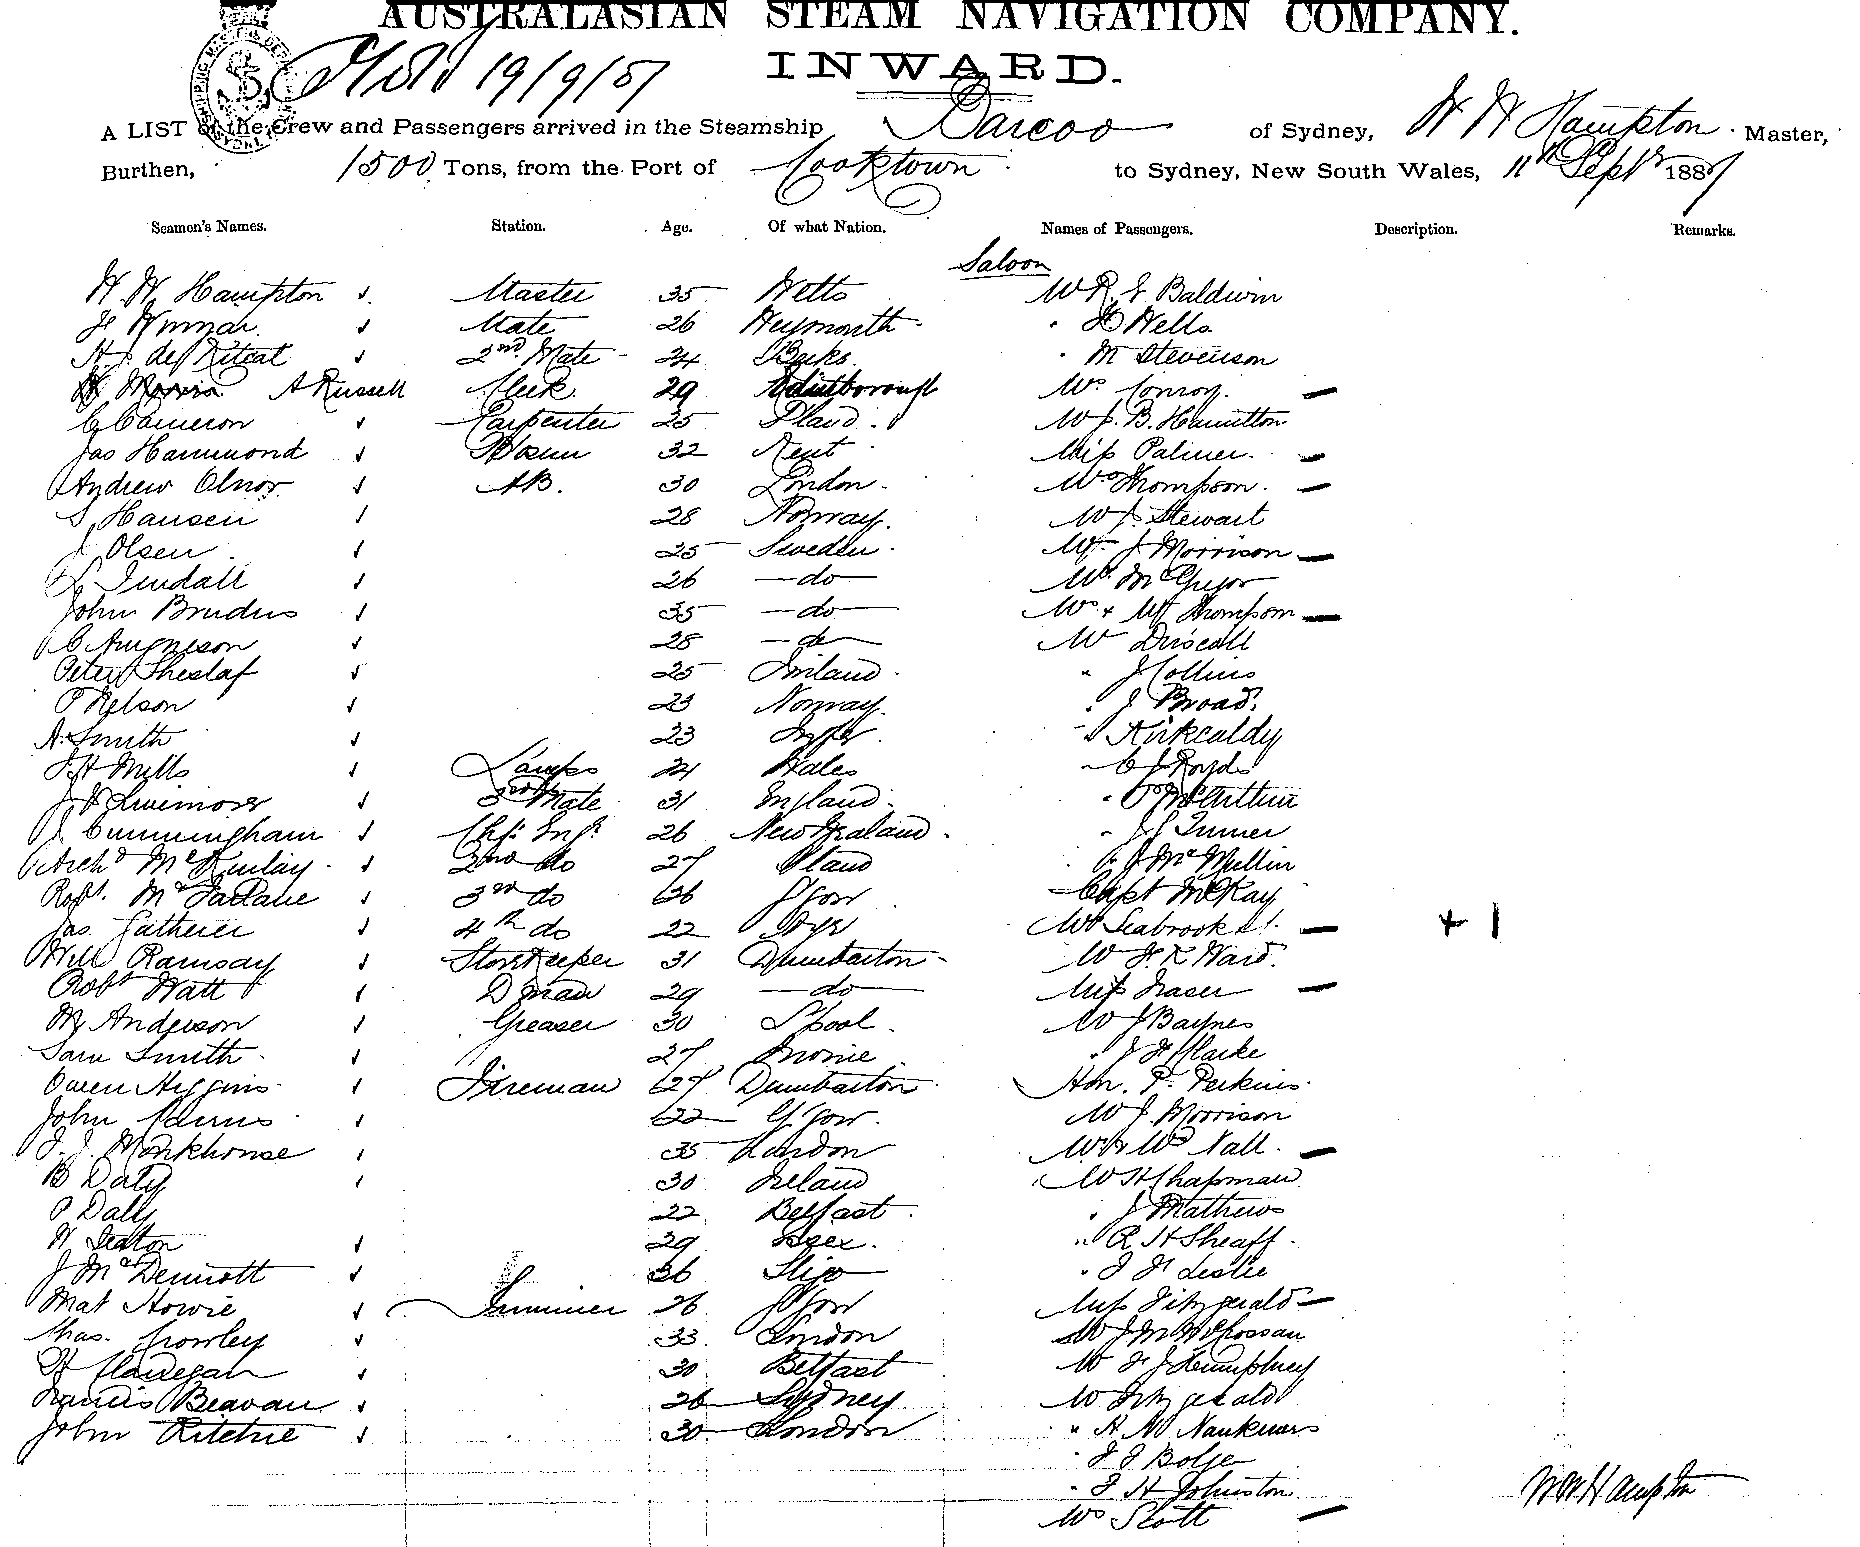 AUSTRALASIAN STEAM NAVIGATION COMPANY.
19/9/87 INWARD.
A LIST of the Crew and Passengers arrived in the Steamship Barcoo of Sydney, W W Hampton Master,
Burthen, 1500 Tons, from the Port of Cooktown to Sydney, New South Wales, 11th Septr 1887
Seamen's Names. Station. Age. Of what Nation. Names of Passengers. Description. Remarks.
Saloon
W. W. Hampton Master 35 Wells Mr R. J Baldwin
Mate 26 Weymouth " H Wells
2nd Mate 24 Bucks " M Stevenson
A Russell Clerk 29 Edinborough Mrs Conroy
C Cameron Carpenter 25 Mr J. B. Hamilton
Jas Hammond Bosun 32 Kent Miss Palmer
Andrew Olnor AB. 30 London Mrs Thompson
Hansen 28 Norway. Mr J. Stewart
J Olsen 25 Sweden Mr J Morrison
Tindall 26 do Mr McGregor
John 35 do Mr & Mrs Thompson
28 do Mr Driscoll
Peter 25 Finland " J Collins
P Nelson 23 Norway " J Broad
A. Smith 23 " Kirkcaldy
J H Mills Lamps 24 Wales " C J Royds
3rd Mate 31 England " McArthur
J Cunningham Chf Engr 26 New Zealand " J J Turner
Archd McKinlay 2nd do 27 " J McMullin
Robt. McFarlane 3rd do 26 G'gow Capt McKay
Jas. Gatherer 4th do 22 Ayr Mr Seabrook + 1
Will Ramsay Storekeeper 31 Dumbarton Mr H. K Ward.
Robt Watt Dman 29 do Miss Fraser
W Anderson Greaser 30 L'pool Mr J Baynes
Sam Smith 27 " J H Clarke
Owen Higgins Fireman 27 Dumbarton Hon. P. Perkins
John Cairns 22 G'gow. Mr J. Morrison
J. J. Monkhouse 35 London Mr & Mrs Nall
B Daly 30 Ireland Mr H Chapman
P Daly 22 Belfast " J Mathews
W Seaton 29 Essex. " R H Sheaff
J McDermott 36 Sligo " J F Leslie
Mat Howie Trimmer 26 G'gow Miss Fitzgerald
Chas. Crowley 33 London Mr J M McCrossan
H Flanegan 30 Belfast Mr F J Humphrey
Francis Beavan 26 Sydney Mr Fitzgerald
John Ritchie 30 London " A W Nankivars
" J J Bolger
" J H Johnston
Mrs Scott
W W Hampton